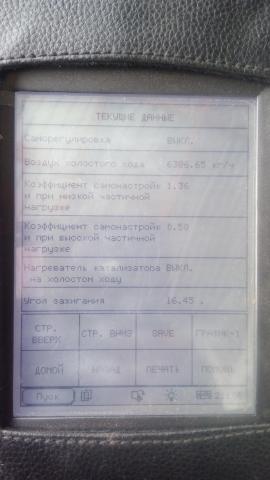 ТЕКУЩИЕ ДАННЫЕ
Саморегулировка ВЫКЛ.
Воздух холостого хода 6386.65 кг/ч
Коэффициент самонастройк 1.36
и при низкой частичной
нагрузке
Коэффициент самонастройк 0.50
и при высокой частичной
нагрузке
Нагреватель катализатора ВЫКЛ.
на холостом ходу
Угол зажигания 16.45 .
СТР. ВВЕРХ
СТР. ВНИЗ
SAVE
ГРАФИК-1
ДОМОЙ
НАЗАД
ПЕЧАТЬ
ПОМОЩЬ
Пуск